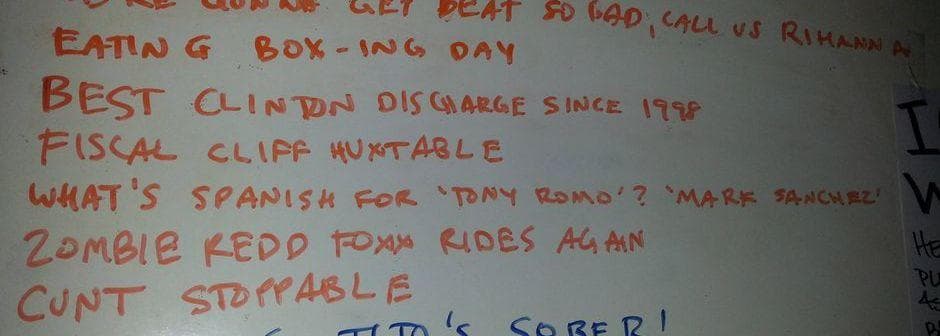 GONNA GET BEAT SO BAD, CALL US RIHANNA
EATING BOX-ING DAY
BEST CLINTON DISCHARGE SINCE 1998
FISCAL CLIFF HUXTABLE
WHAT'S SPANISH FOR 'TONY ROMO'? 'MARK SANCHEZ'
ZOMBIE REDD FOXX RIDES AGAIN
CUNT STOPPABLE
TITO'S SOBER!
I
W
HE
PU